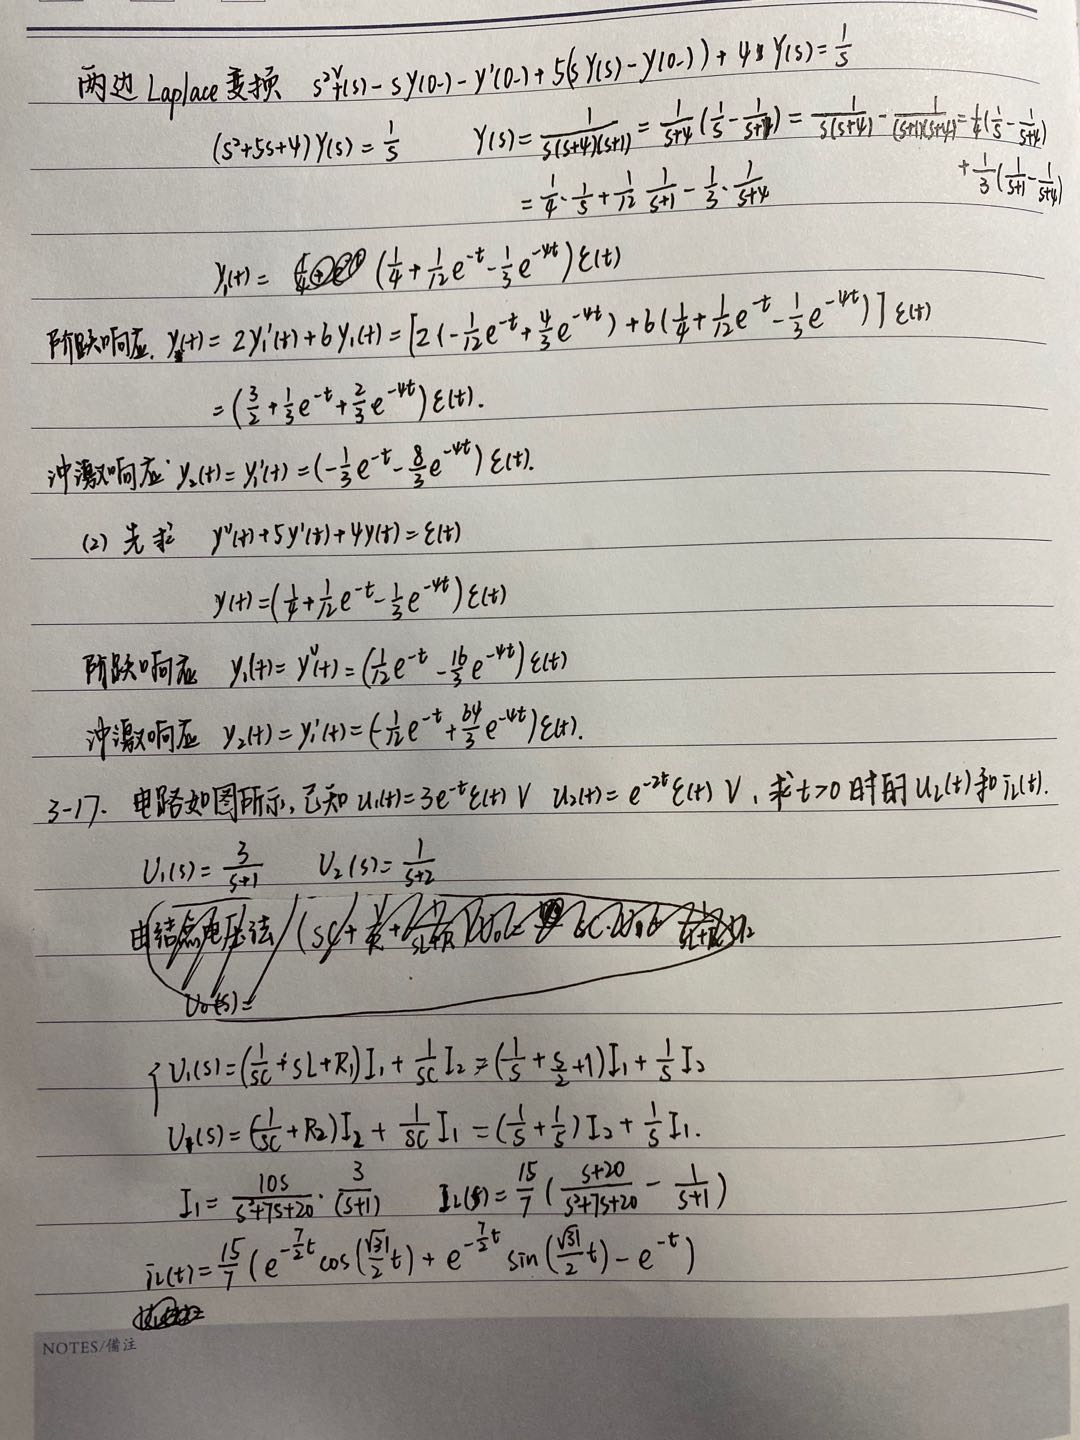 两边Laplace变换 s²Y(s)-sy(0-)-y'(0-)+5(sY(s)-y(0-))+4Y(s)=1/s
(s²+5s+4)Y(s)=1/s Y(s)=1/(s(s+4)(s+1))=1/(s+4)(1/s-1/(s+1))=1/(s(s+4))-1/((s+1)(s+4))=1/4(1/s-1/(s+4))
+1/3(1/(s+1)-1/(s+4))
=1/4·1/s+1/12 1/(s+1)-1/3·1/(s+4)
y₁(t)= (1/4+1/12e^{-t}-1/3e^{-4t})ε(t)
阶跃响应. y(t)=2y₁'(t)+6y₁(t)=[2(-1/12e^{-t}+4/3e^{-4t})+6(1/4+1/12e^{-t}-1/3e^{-4t})]ε(t)
=(3/2+1/3e^{-t}+2/3e^{-4t})ε(t).
冲激响应: y₂(t)=y₁'(t)=(-1/3e^{-t}-8/3e^{-4t})ε(t).
(2) 先求 y''(t)+5y'(t)+4y(t)=ε(t)
y(t)=(1/4+1/12e^{-t}-1/3e^{-4t})ε(t)
阶跃响应 y₁(t)=y''(t)=(1/12e^{-t}-16/3e^{-4t})ε(t)
冲激响应 y₂(t)=y₁'(t)=(-1/12e^{-t}+64/3e^{-4t})ε(t).
3-17. 电路如图所示,已知u₁(t)=3e^{-t}ε(t) V u₂(t)=e^{-2t}ε(t) V, 求t>0时的u_L(t)和i_L(t).
U₁(s)=3/(s+1) U₂(s)=1/(s+2)
由结点电压法
U₀(s)=
{U₁(s)=(1/sC+sL+R₁)I₁+1/sC I₂=(1/s+s/2+1)I₁+1/s I₂
U(s)=(1/sC+R₂)I₂+1/sC I₁=(1/s+1/5)I₂+1/s I₁.
I₁=10s/(s²+7s+20)·3/(s+1) I_L(s)=15/7((s+20)/(s²+7s+20)-1/(s+1))
i_L(t)=15/7(e^{-7/2t}cos(√31/2t)+e^{-7/2t}sin(√31/2t)-e^{-t})
NOTES/備注